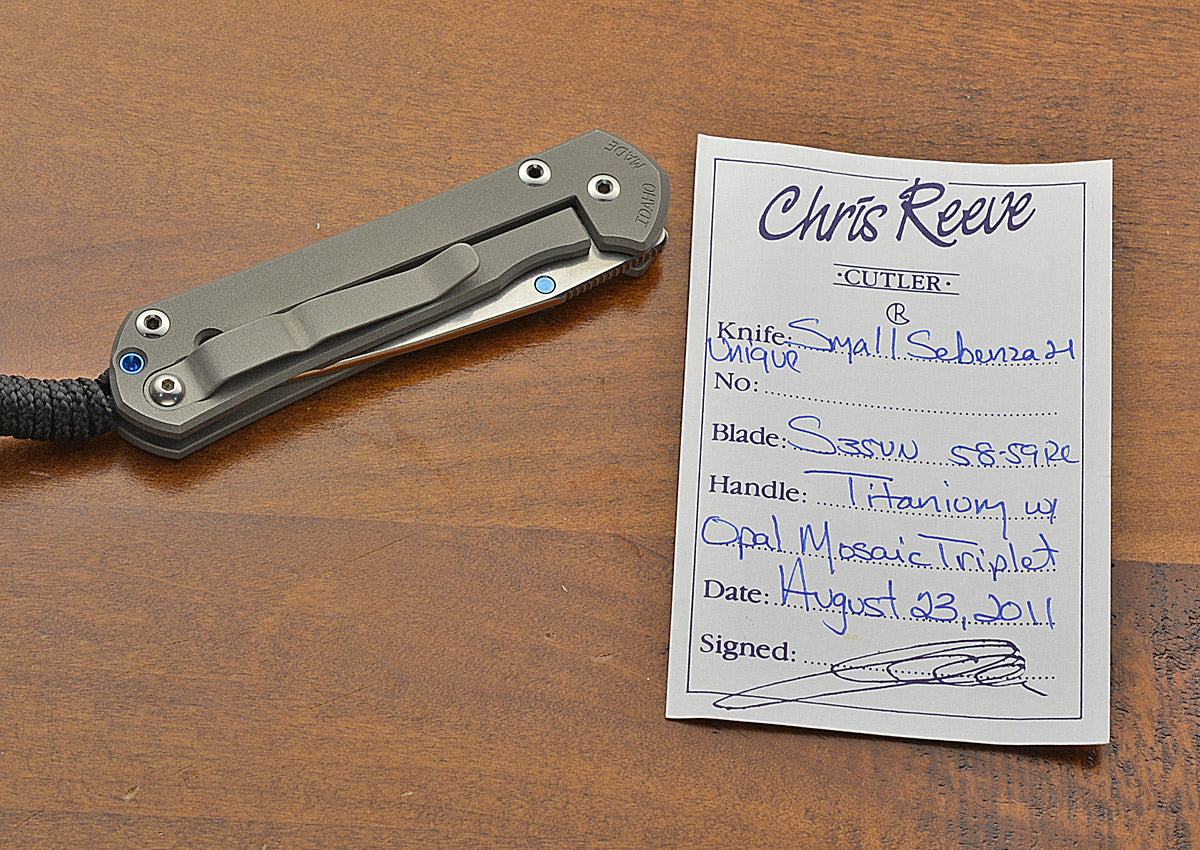 MADE
IDAHO
Chris Reeve
·CUTLER·
R
Knife: Small Sebenza 21
Unique
No:
Blade: S35VN 58-59 RC
Handle: Titanium w/
Opal Mosaic Triplet
Date: August 23, 2011
Signed: